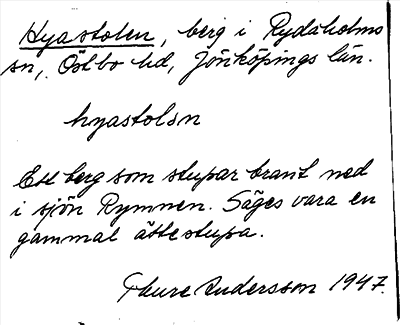 Hyastolen, berg i Rydaholms
sn, Östbo hd, Jönköpings län.
hyastolsn
Ett berg som stupar brant ned
i sjön Rymnen. Säges vara en
gammal ättestupa.
Thure Andersson 1947.